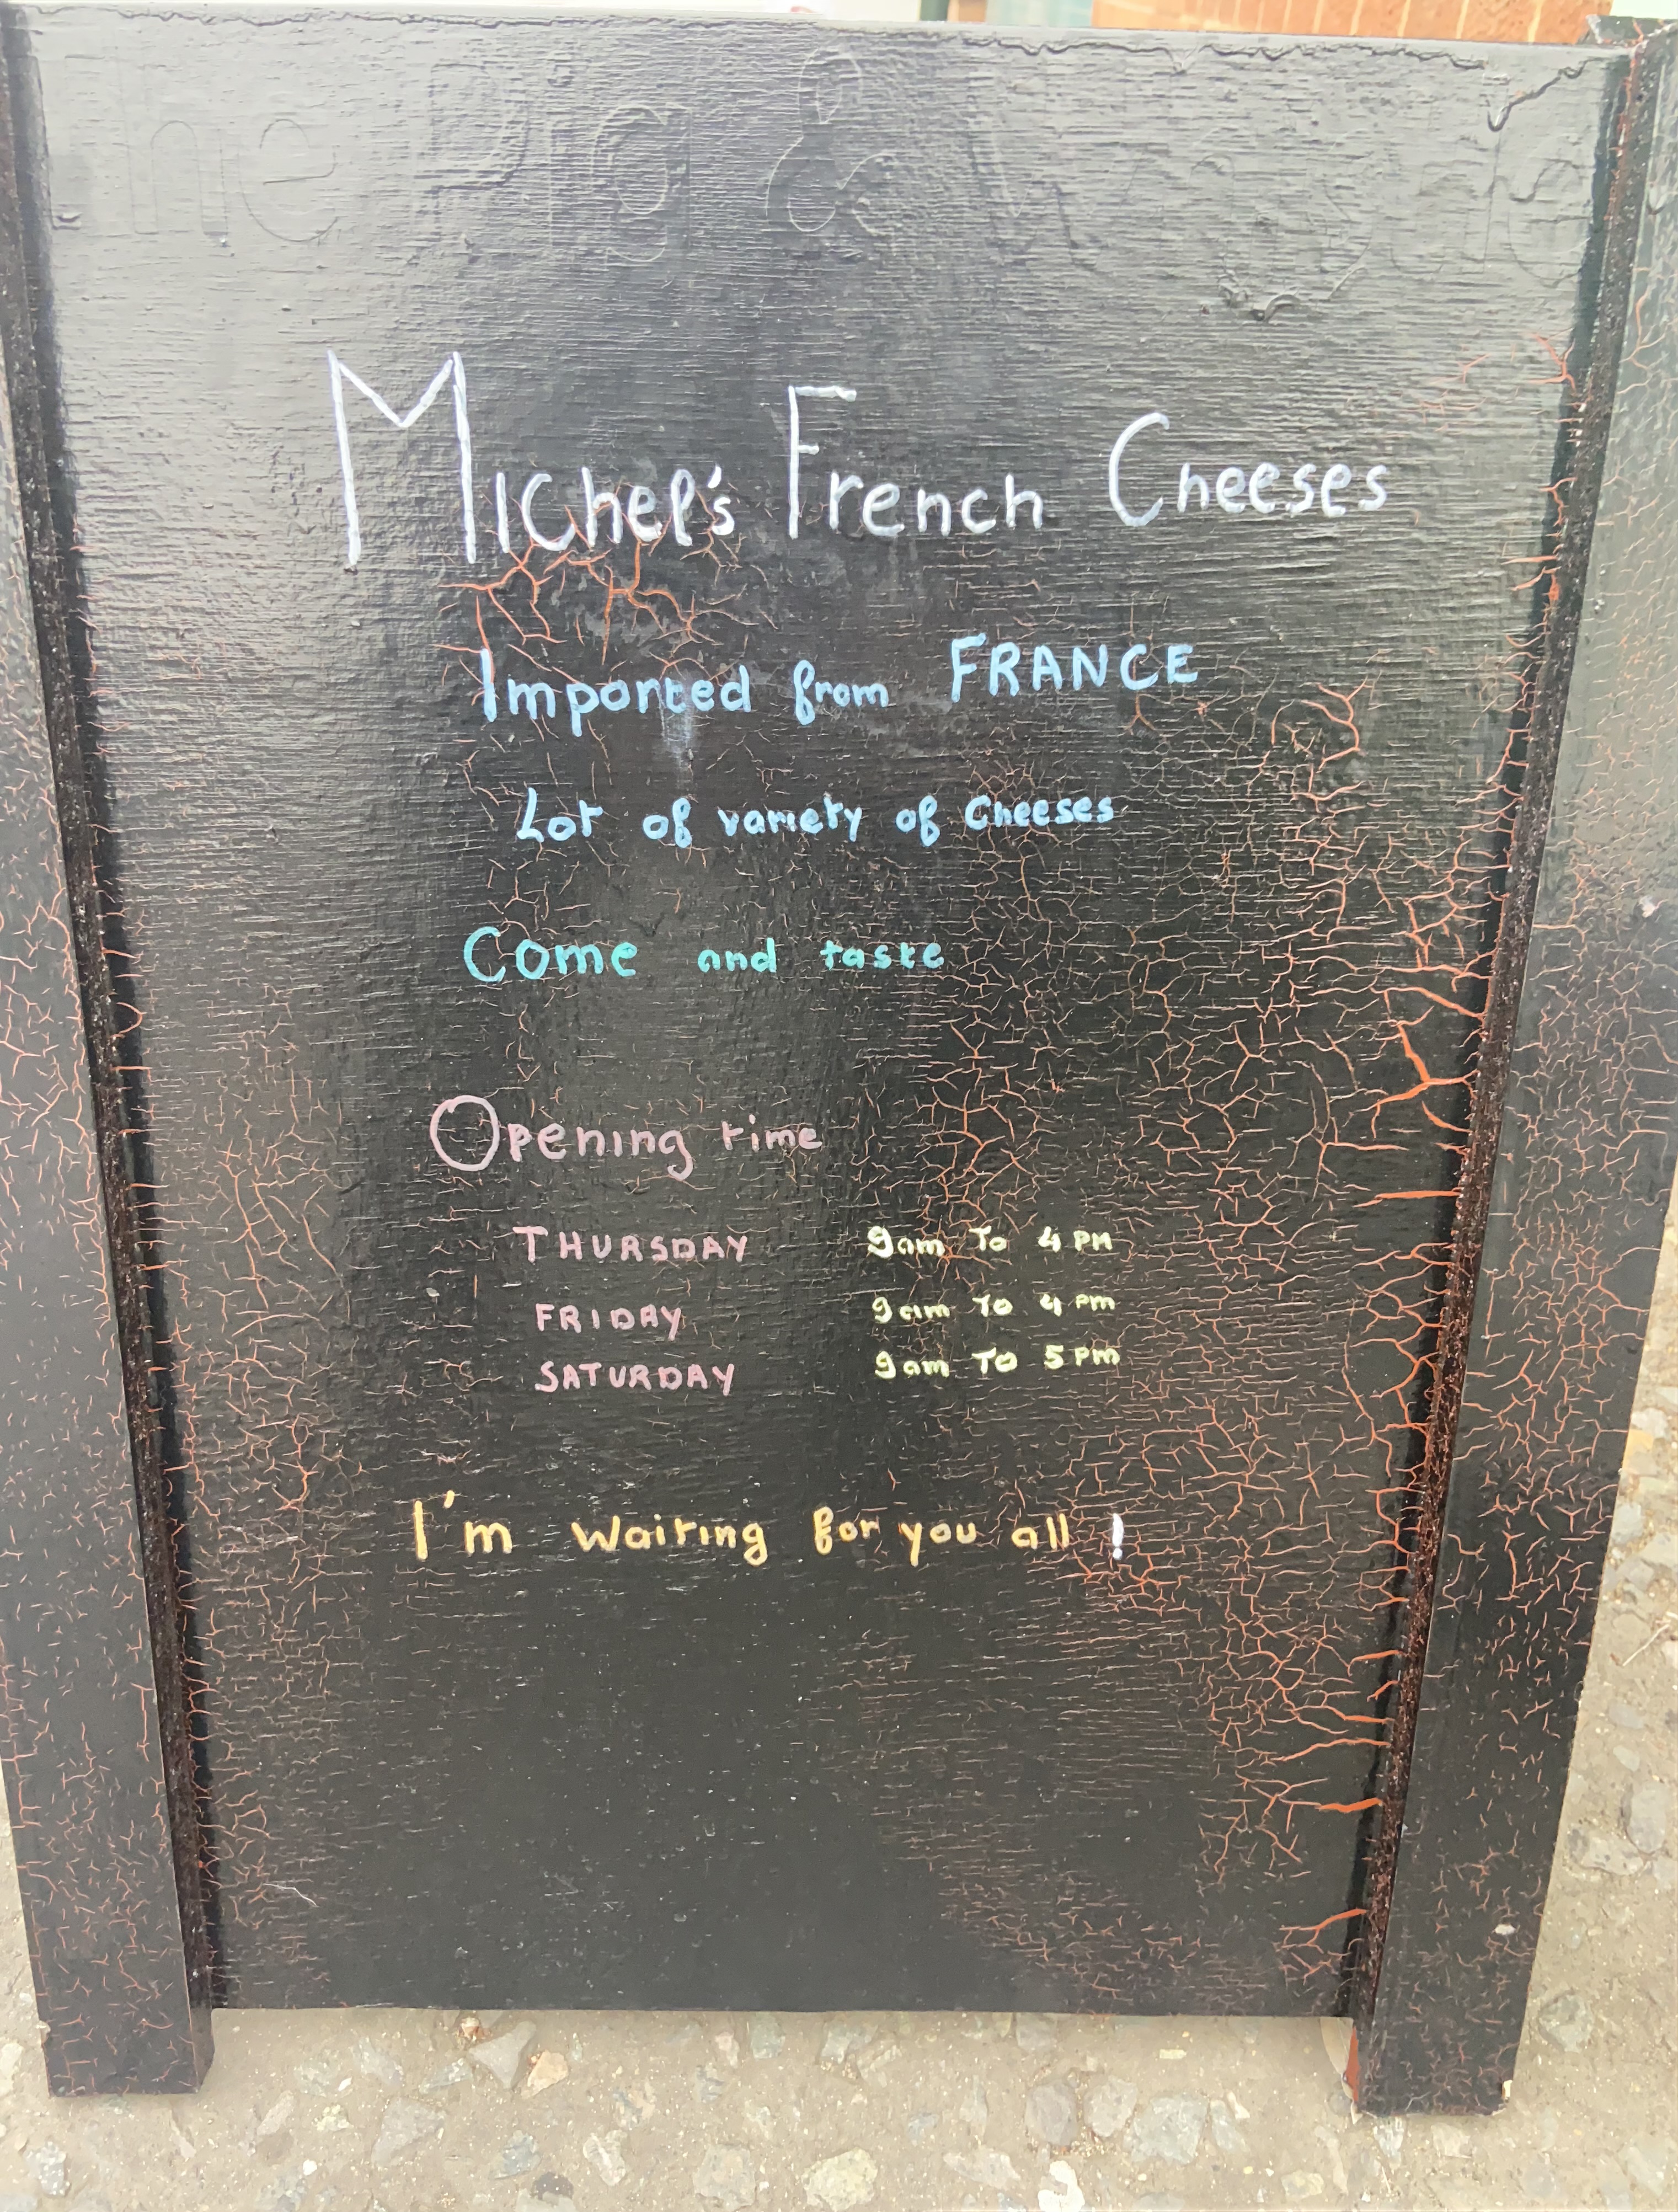 The Pig &
Michel's French Cheeses
Imported from FRANCE
Lot of variety of Cheeses
Come and taste
Opening time
THURSDAY 9am To 4 PM
FRIDAY 9am To 4 pm
SATURDAY 9am TO 5 Pm
I'm waiting for you all !